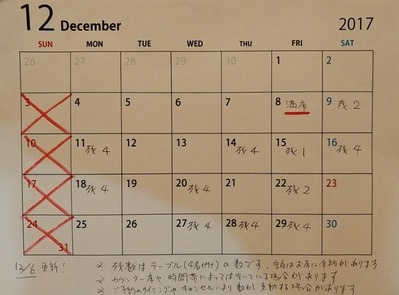 12 December 2017
SUN MON TUE WED THU FRI SAT
26 27 28 29 30 1 2
3 4 5 6 7 8 満席 9 残2
10 11 残4 12 13 14 残4 15 残1 16 残4
17 18 残4 19 20 残4 21 22 残2 23
24 25 26 27 残4 28 残4 29 残4 30
31
12/6 更新！ ※ 残数はテーブル(4名掛け)の数です。
※ カウンター席や時間帯によっては空いている場合があります
※ ご予約のタイミングやキャンセルにより数が変動する場合があります